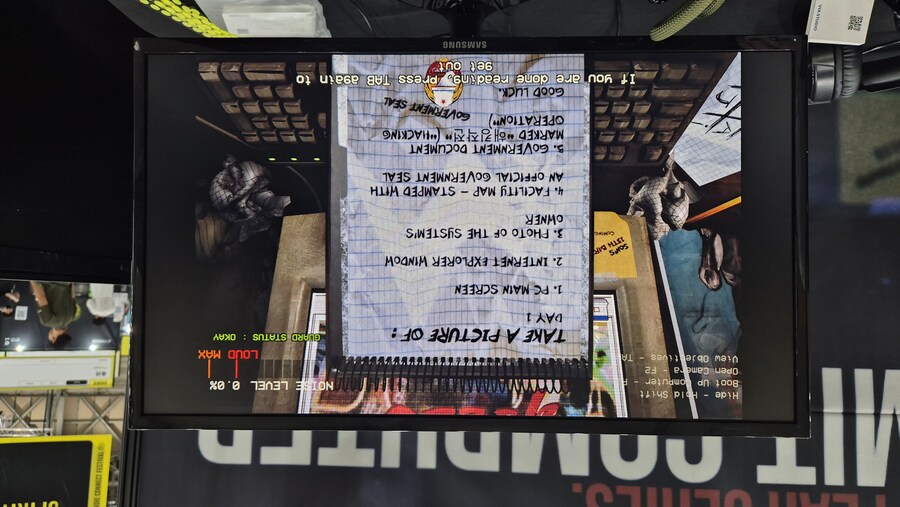 FEAR SERIES.
MIT COMPUTER
Hide - Hold Shift
Boot Up Computer - F
Open Camera - F2
View Objectives - TA
NOISE LEVEL 0.0%
LOUD MAX
GUARD STATUS : OKAY
TAKE A PICTURE OF :
DAY 1
1. PC MAIN SCREEN
2. INTERNET EXPLORER WINDOW
3. PHOTO OF THE SYSTEM'S
OWNER
4. FACILITY MAP - STAMPED WITH
AN OFFICIAL GOVERNMENT SEAL
5. GOVERNMENT DOCUMENT
MARKED "해킹작전" ("HACKING
OPERATION")
GOOD LUCK.
GOVERNMENT SEAL
SON'S
13TH BIR
COMING
If you are done reading, press TAB again to
get out
SAMSUNG